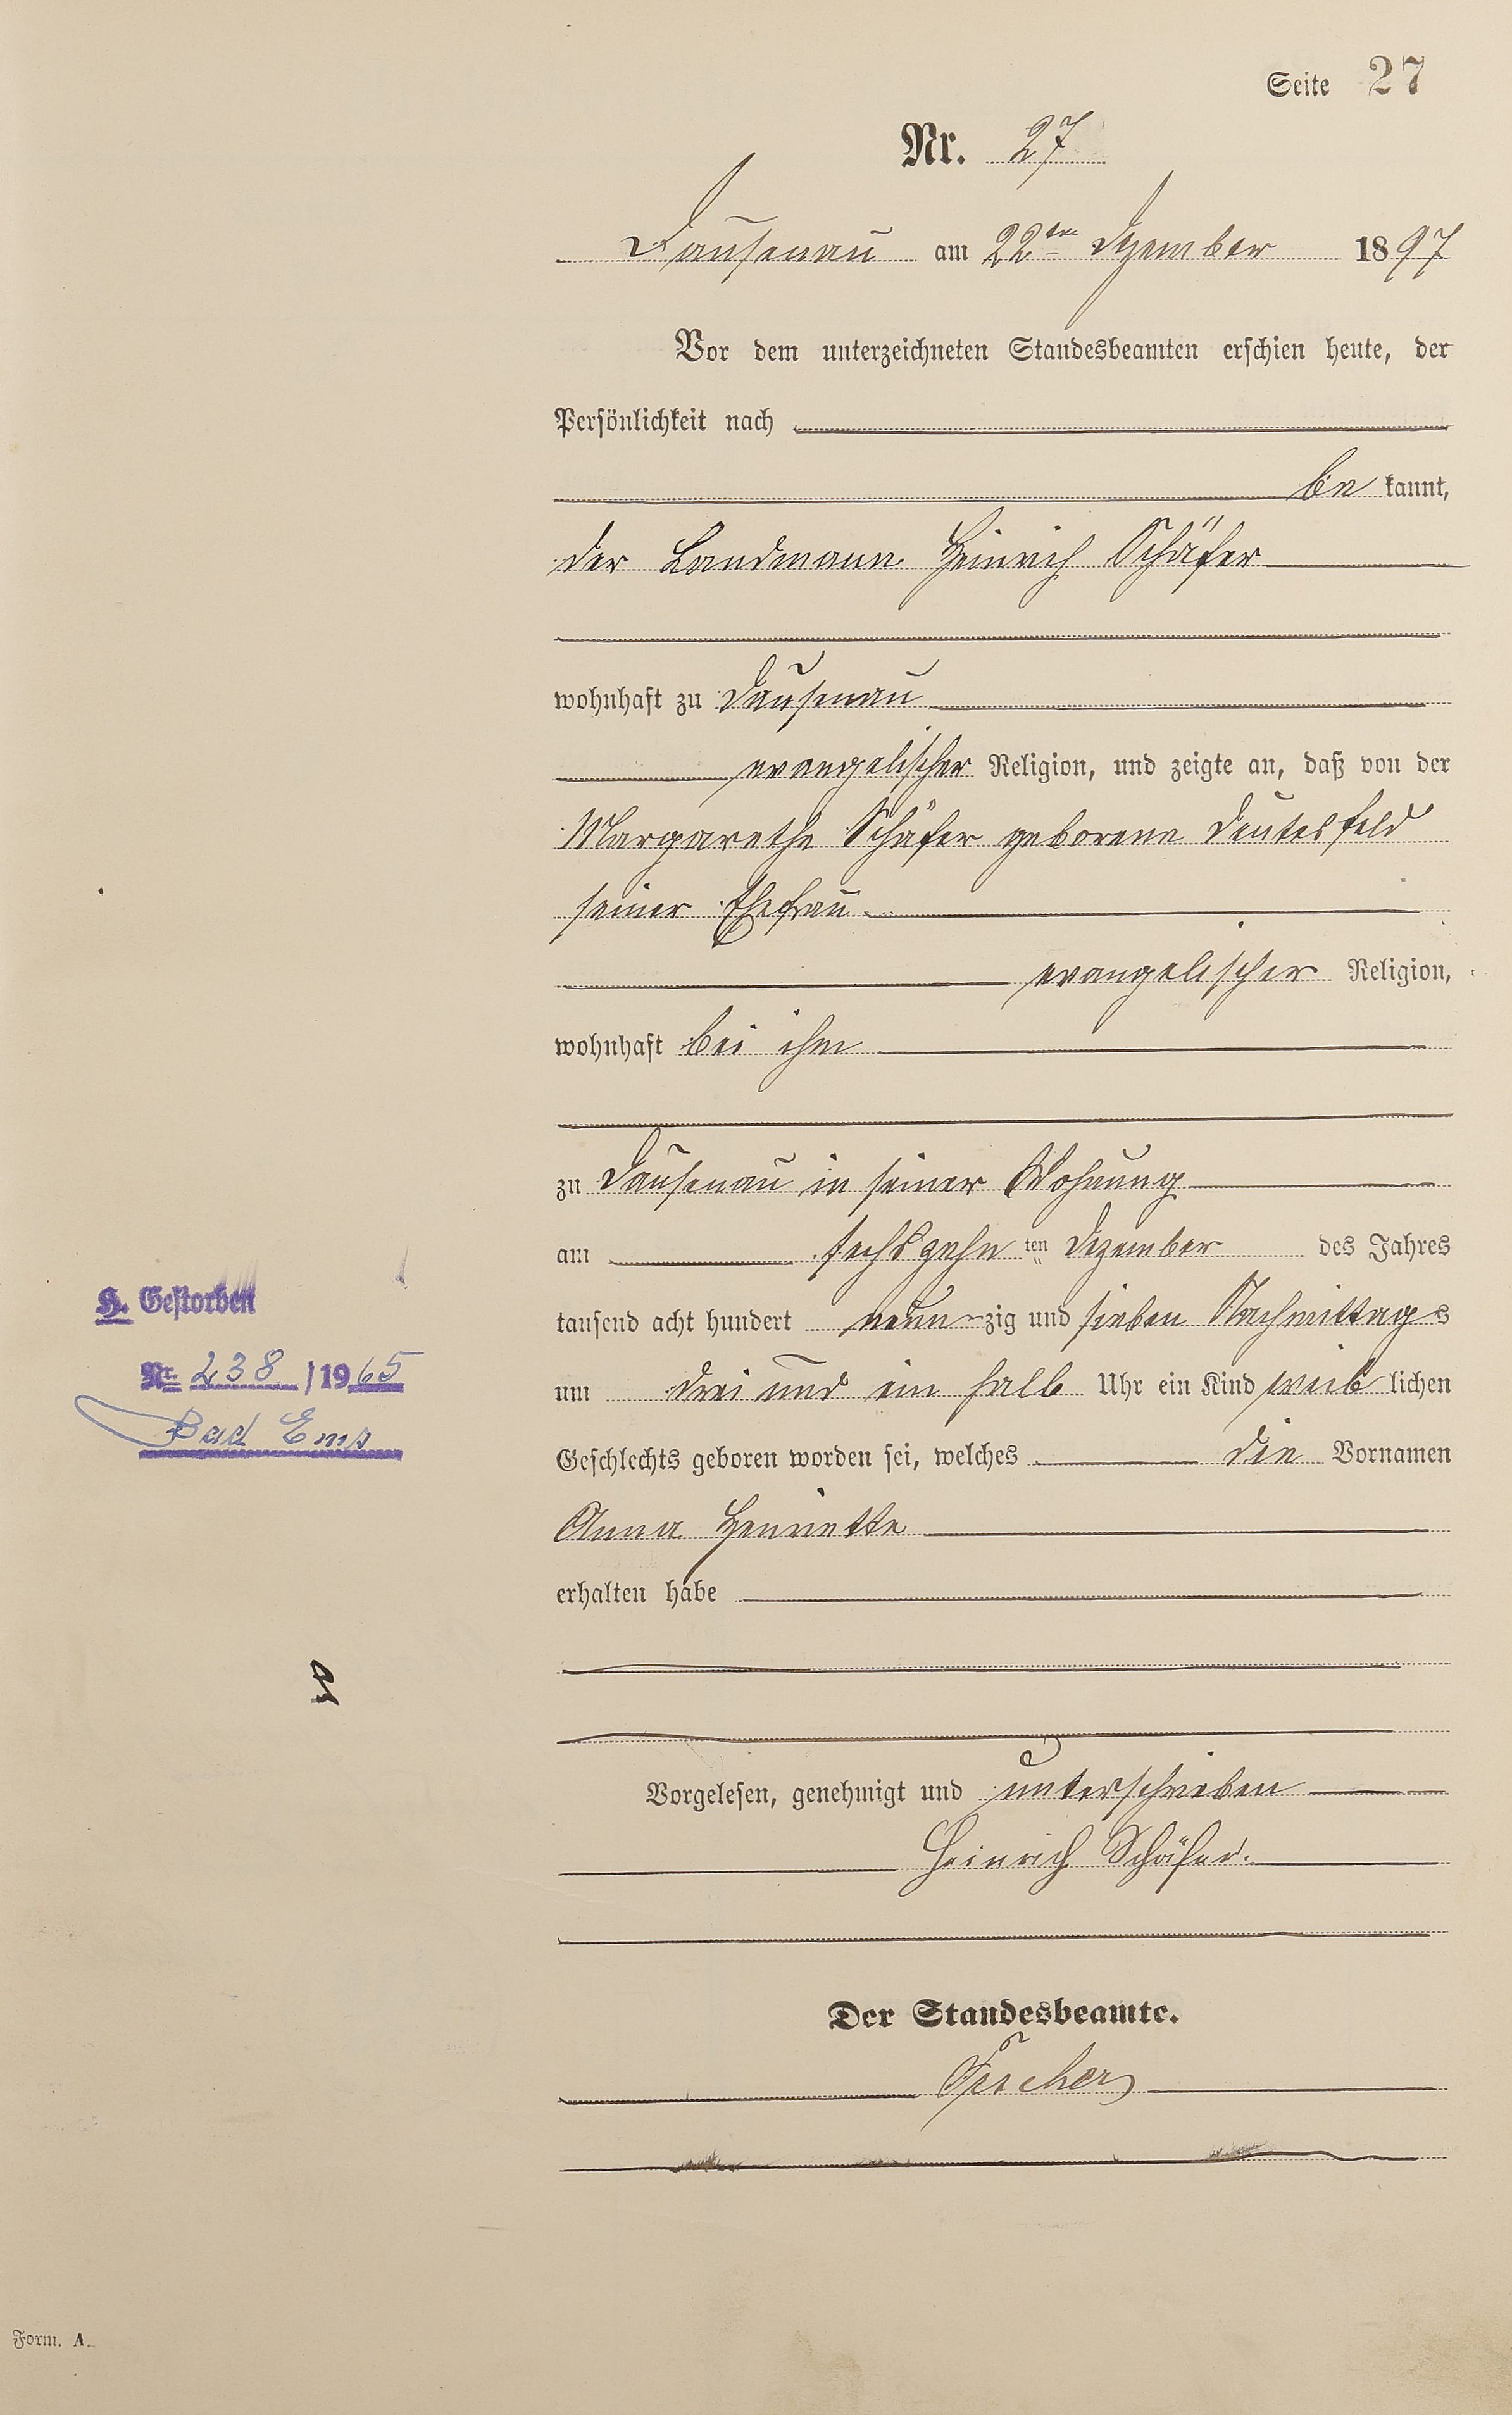 Seite 27
Nr. 27
Dausenau am 22ten Dezember 1897
Vor dem unterzeichneten Standesbeamten erschien heute, der
Persönlichkeit nach
be kannt,
der Landmann Heinrich Schäfer
wohnhaft zu Dausenau
evangelischer Religion, und zeigte an, daß von der
Margarethe Schäfer geborene Deutesfeld
seiner Ehefrau
evangelischer Religion,
wohnhaft bei ihm
zu Dausenau in seiner Wohnung
am sechszehn ten Dezember des Jahres
tausend acht hundert neun zig und sieben Nachmittags
um drei und ein halb Uhr ein Kind weib lichen
Geschlechts geboren worden sei, welches die Vornamen
Anna Henriette
erhalten habe
Vorgelesen, genehmigt und unterschrieben
Heinrich Schäfer.
Der Standesbeamte.
Fischer
H. Gestorben
Nr. 238 / 1965
Bad Ems
Form. A.